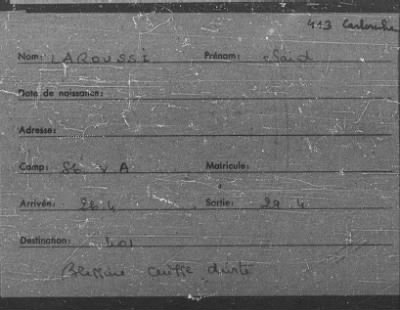 413 Carlsruhe
Nom: LAROUSSI Prénom: Said
Date de naissance:
Adresse:
Camp: St. V A Matricule:
Arrivée: 26.4 Sortie: 29 4
Destination:
Blessure cuisse droite